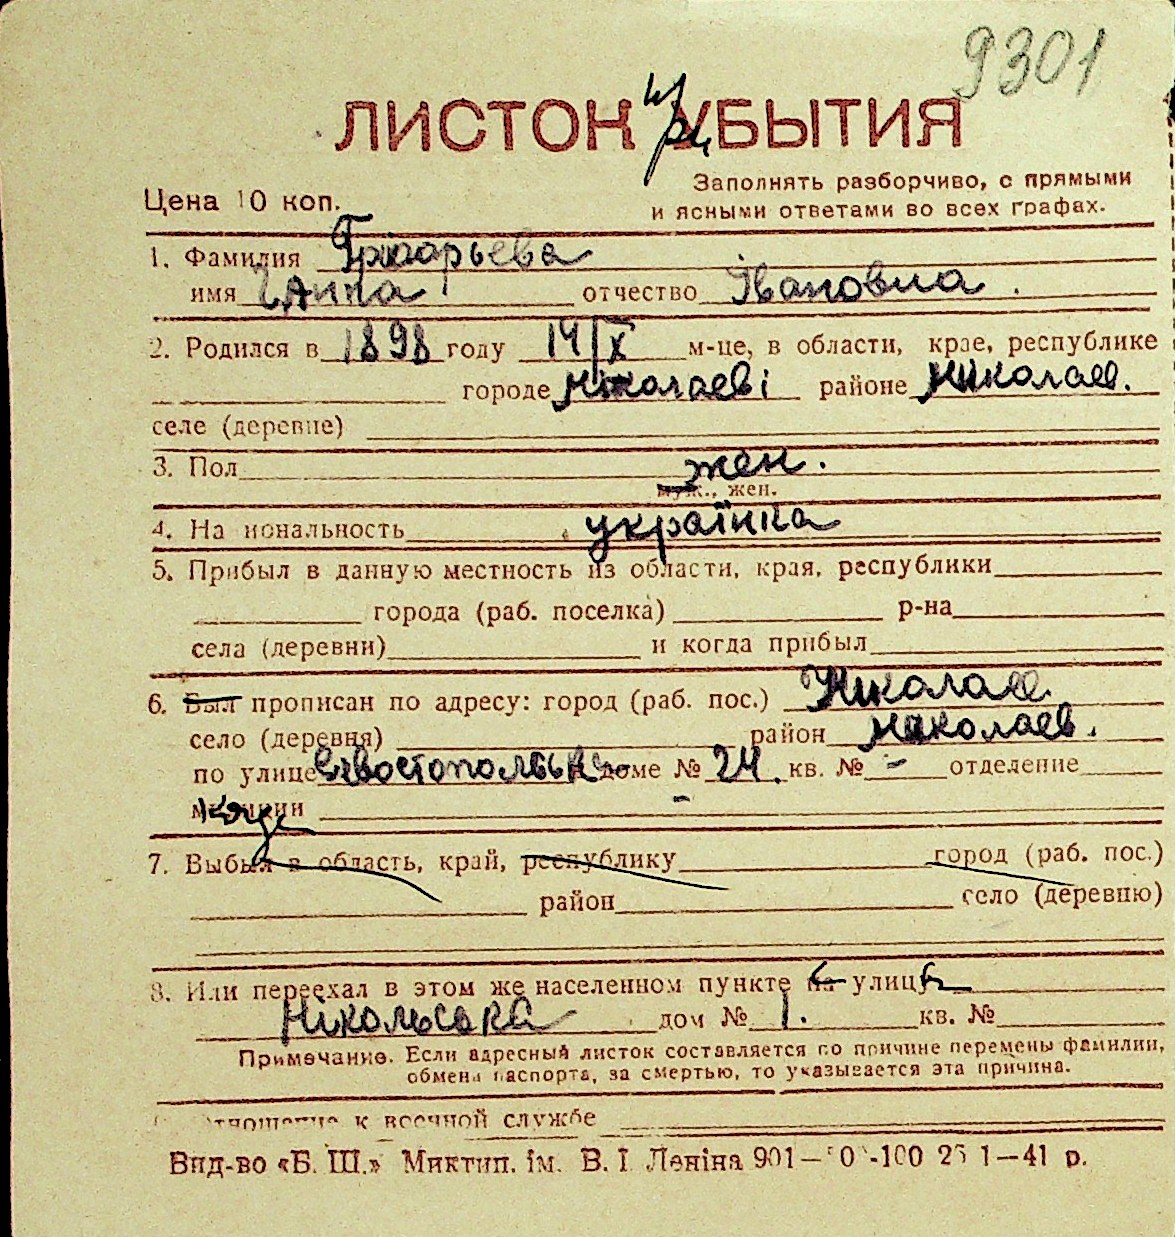 9301
ЛИСТОК При УБЫТИЯ
Цена 10 коп.
Заполнять разборчиво, с прямыми
и ясными ответами во всех графах.
1. Фамилия Григорьева
имя Ганна отчество Івановна.
2. Родился в 1898 году 14/X м-це, в области, крае, республике
городе Ніколаеві районе Николаев.
селе (деревне)
3. Пол жен.
муж., жен.
4. На иональность українка
5. Прибыл в данную местность из области, края, республики
города (раб. поселка) р-на
села (деревни) и когда прибыл
6. Был прописан по адресу: город (раб. пос.) Николаев
село (деревня) район Николаев.
по улице Севостопольск доме № 24. кв. № - отделение
милиции -
7. Выбыл в область, край, республику город (раб. пос.)
район село (деревню)
8. Или переехал в этом же населенном пункте на с улицу
Нікольська дом № 1. кв. №
Примечание. Если адресный листок составляется по причине перемены фамилии,
обмена паспорта, за смертью, то указывается эта причина.
Отношение к военной службе
Вид-во «Б. Ш.» Миктип. ім. В. І. Леніна 901— 0 -100 25 1—41 р.